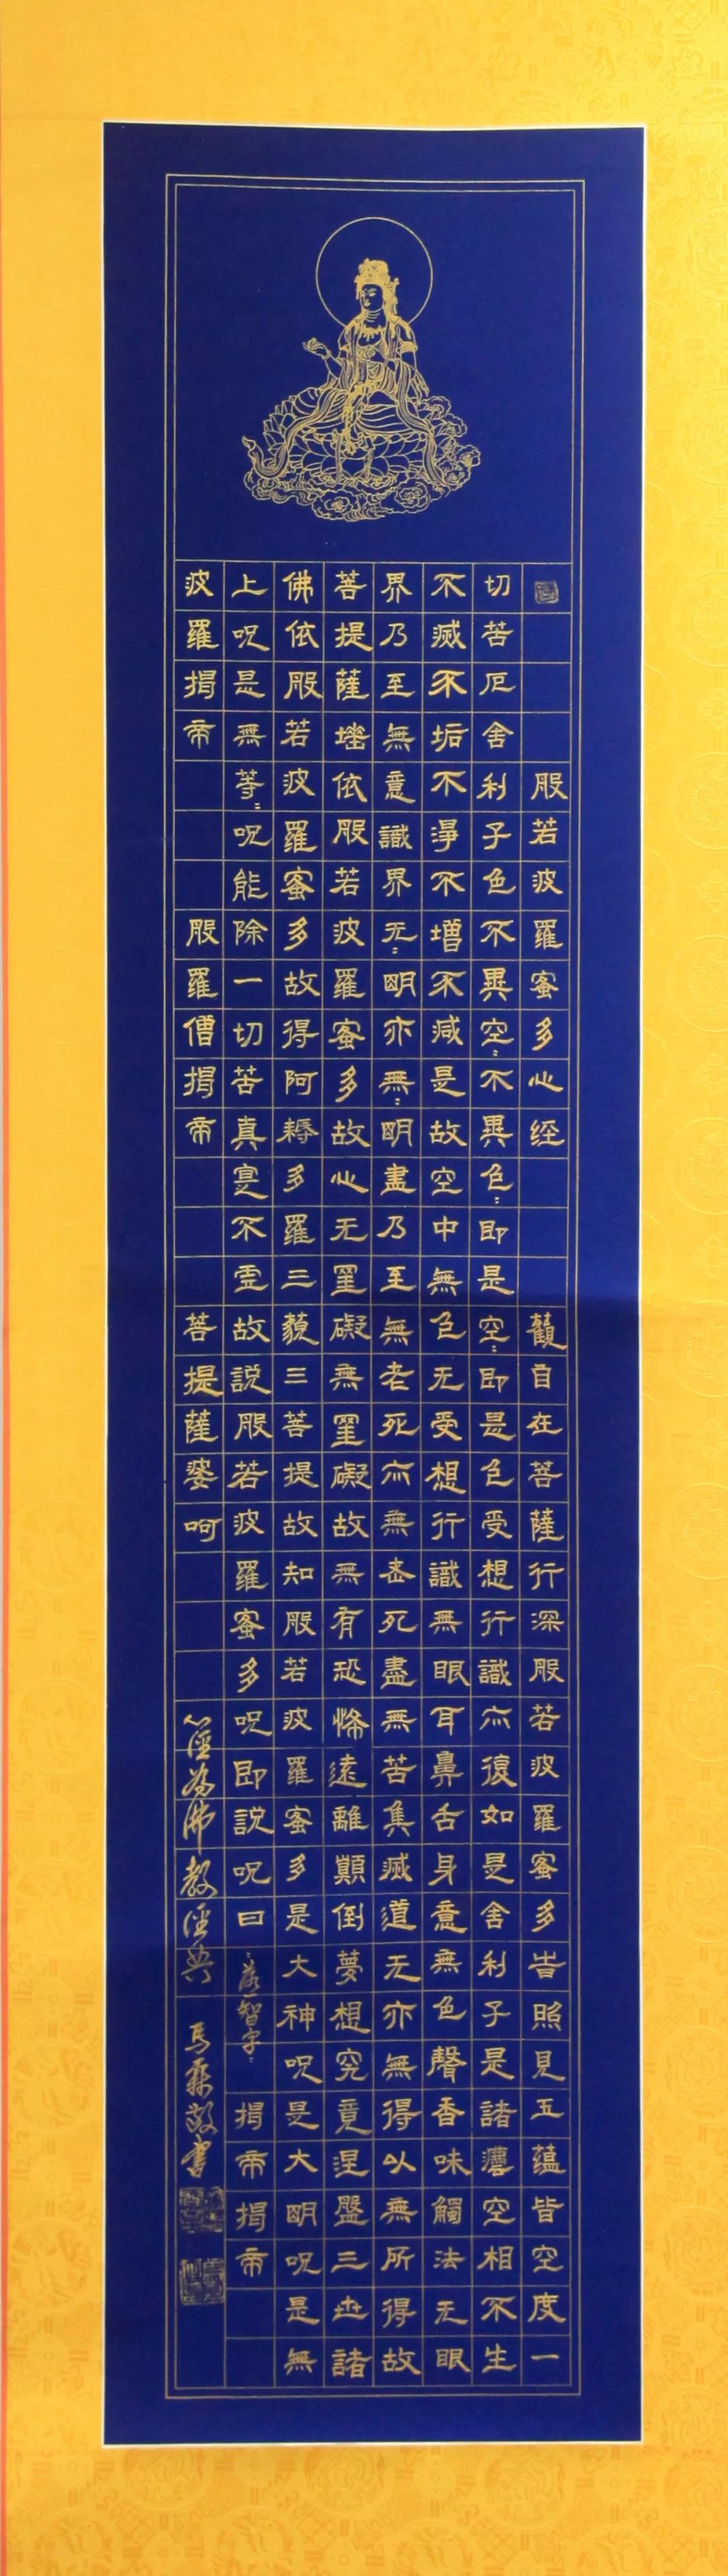 般若波羅蜜多心经 觀自在菩薩行深般若波羅蜜多旹照見五蕴皆空度一
切苦厄舍利子色不異空〻不異色〻即是空〻即是色受想行識亦復如是舍利子是諸灋空相不生
不滅不垢不淨不增不減是故空中無色无受想行識無眼耳鼻舌身意無色聲香味觸法无眼
界乃至無意識界无〻明亦無〻明盡乃至無老死亦無老死盡無苦集滅道无亦無得以無所得故
菩提薩埵依般若波羅蜜多故心无罣礙無罣礙故無有恐怖遠離顛倒夢想究竟涅盤三世諸
佛依般若波羅蜜多故得阿耨多羅三藐三菩提故知般若波羅蜜多是大神呪是大明呪是無
上呪是無等〻呪能除一切苦真寔不虛故說般若波羅蜜多呪即說呪曰 落智字 揭帝揭帝
波羅揭帝 般羅僧揭帝 菩提薩婆呵 心經為佛教經典 馬敬書